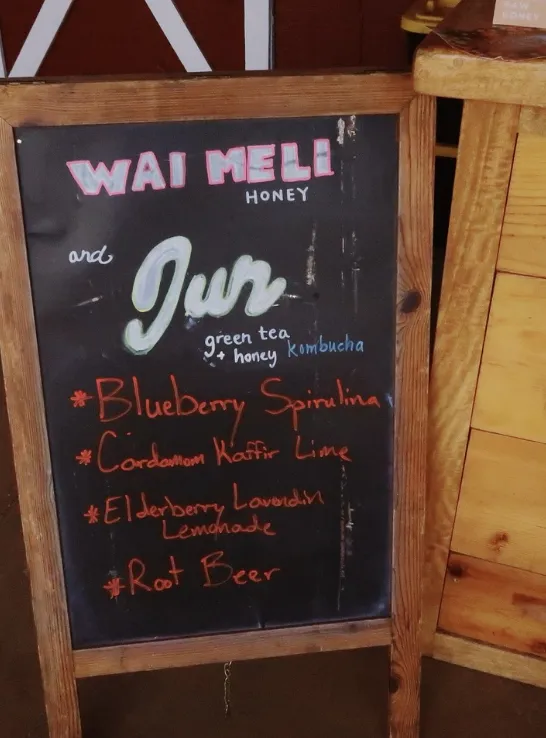 RAW
HONEY
WAI MELI
HONEY
and
Jun
green tea
+ honey kombucha
* Blueberry Spirulina
* Cardamom Kaffir Lime
* Elderberry Lavendin
Lemonade
* Root Beer